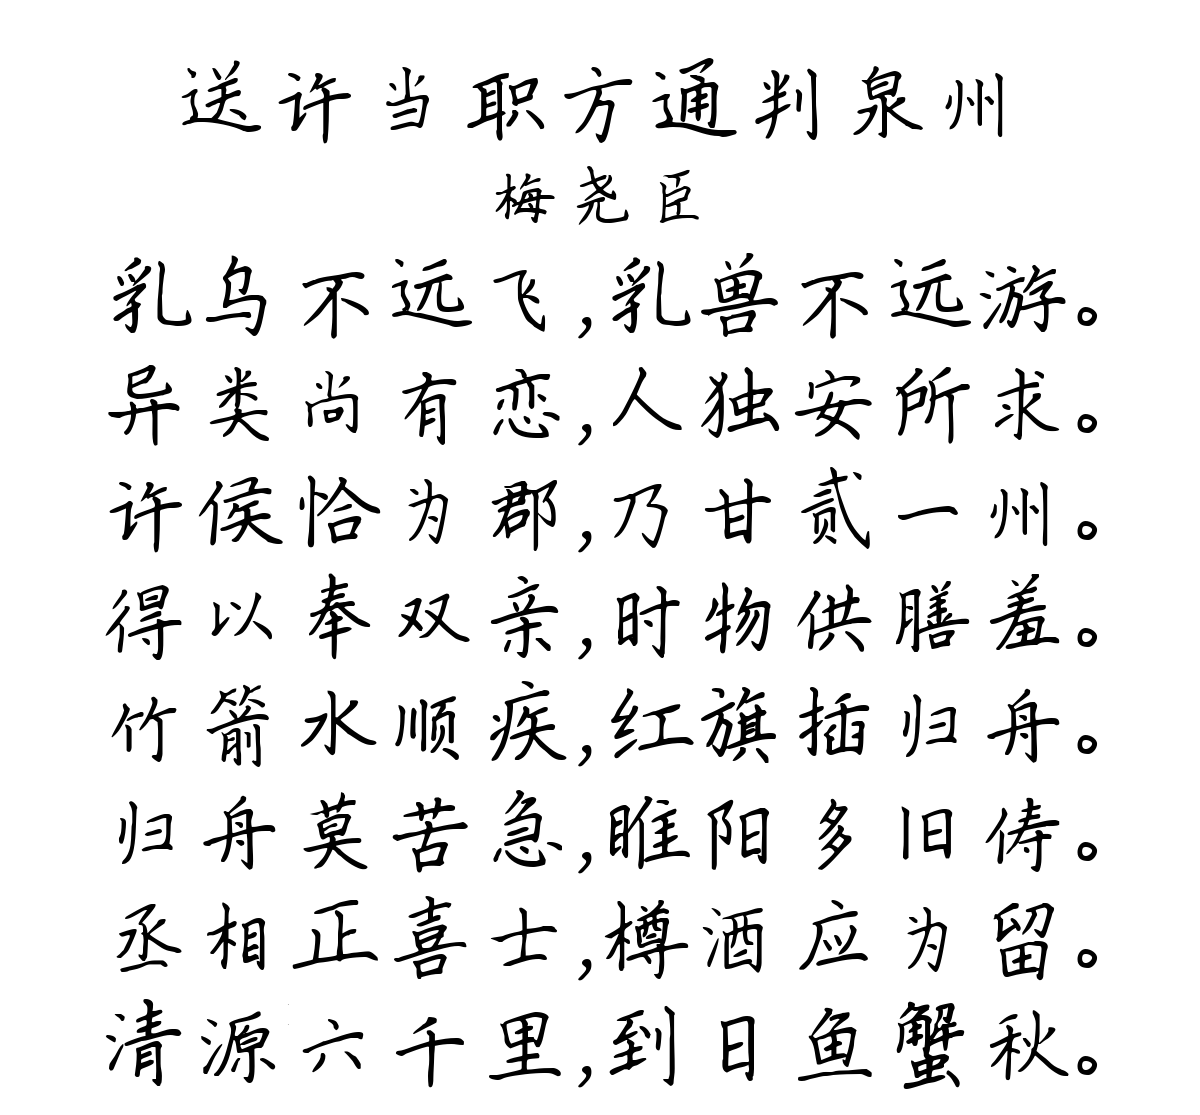 送许当职方通判泉州
梅尧臣
乳乌不远飞,乳兽不远游。
异类尚有恋,人独安所求。
许侯恰为郡,乃甘贰一州。
得以奉双亲,时物供膳羞。
竹箭水顺疾,红旗插归舟。
归舟莫苦急,睢阳多旧俦。
丞相正喜士,樽酒应为留。
清源六千里,到日鱼蟹秋。